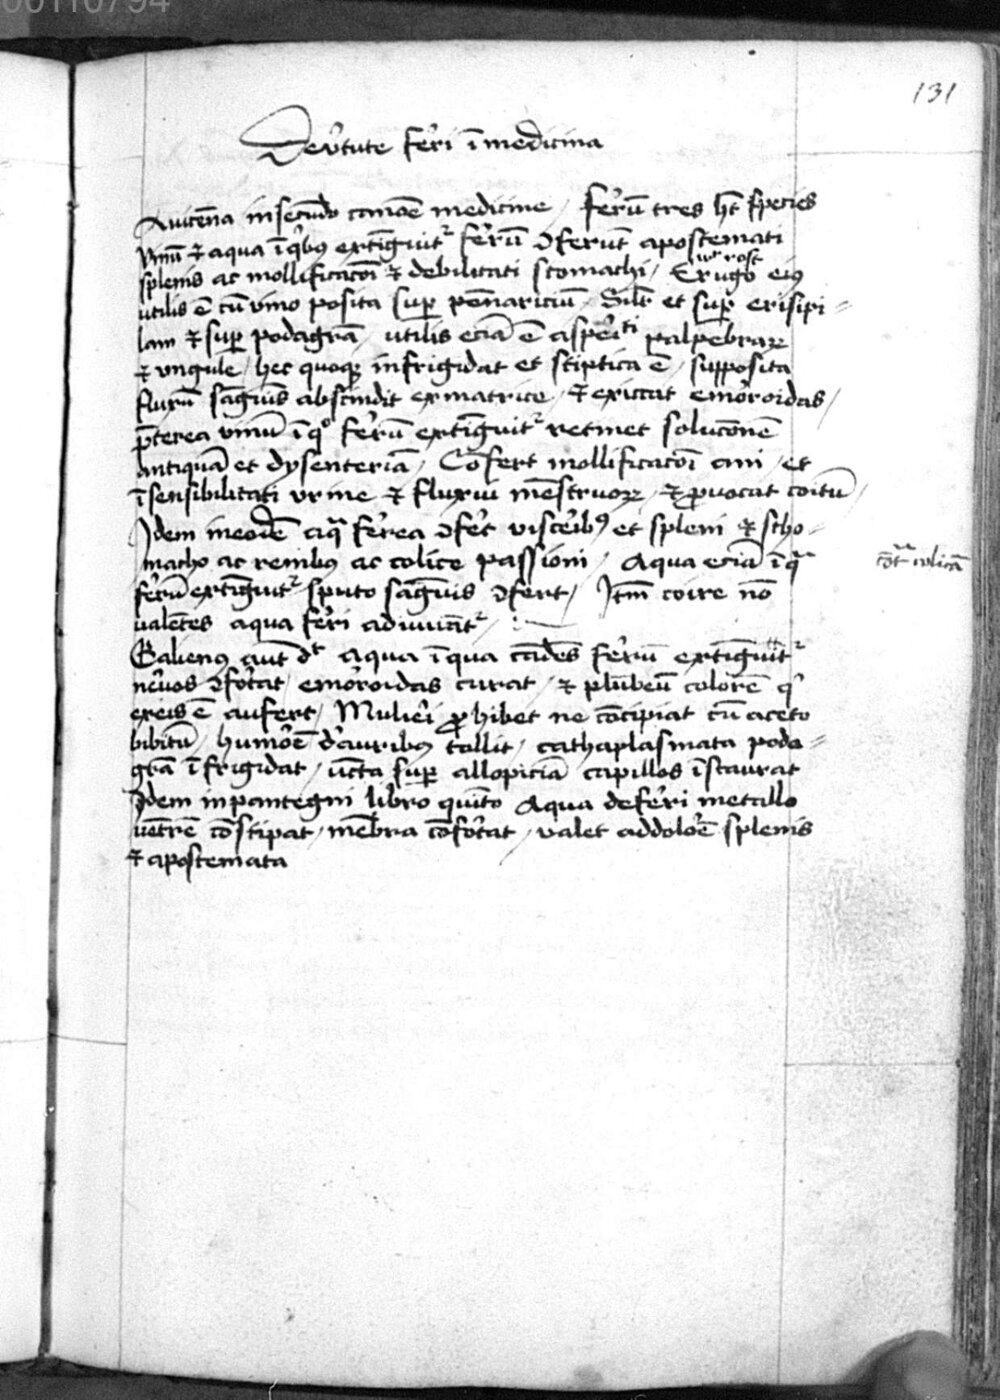 00110794
131
De v̾tute fer̾i ī medicina
Avicēna in secūdo canōe medicine / fer̾ū tres ht̄ species
vinū ⁊ aqua ī q̾bꝯ extīguit᷑ fer̾ū ꝯferūt apostemati
wr rost
splenis ac mollificacōi ⁊ debilitati stomachi / Erugo eiꝯ
utilis ē cū vino posita suꝑ pēnariciū / Silr̄ et suꝑ erisipi =
lam ⁊ suꝑ podagrā / utilis eciā ē asper̾ti palpebraꝝ
⁊ ungule / hec quoqꝫ infrigidat et stiptica ē / supposita
fluxū sāguīs abscindit ex matrice / ⁊ exiccat emor̾oidas /
p̄terea vinū ī qͦ fer̾ū extīguit᷑ retinet solucōnē
antiquā et dysenteriā / Cōfert mollificacōi ani / et
īsensibilitati urine ⁊ fluxui mēstruoꝝ / ⁊ ꝓvocat coitū /
Idem in eodē aq̄ fer̾ea ꝯfer̾t viscer̾ibꝯ et spleni ⁊ sto =
macho ac renibꝯ ac colice passioni / Aqua eciā ī qᷓ
cōtᷓ colicā
fer̾ū extīguit᷑ sputo sāguīs ꝯfert / Itm̄ coire nō
valētes aqua fer̾i adiuvāt᷑ /
Galienꝯ aut̄ dt̄ aqua ī qua cādēs fer̾ū extīguit᷑
ner̾vos ꝯfor̾tat / emor̾oidas curat / ⁊ plūbeū colorē q̾
ex eis ē aufert / Mulier̾i ꝓhibet ne cōcipiat cū aceto
bibitū / humor̾ē d̾ auribꝯ tollit / cathaplasmata poda =
grā īfrigidat / ūcta suꝑ allopiciā capillos īstaurat
Idem in pantegni libro quīto Aqua de fer̾i metallo
uētrē cōstipat / mēbra cōfor̾tat / valet ad dolor̾ē splenis
⁊ apostemata